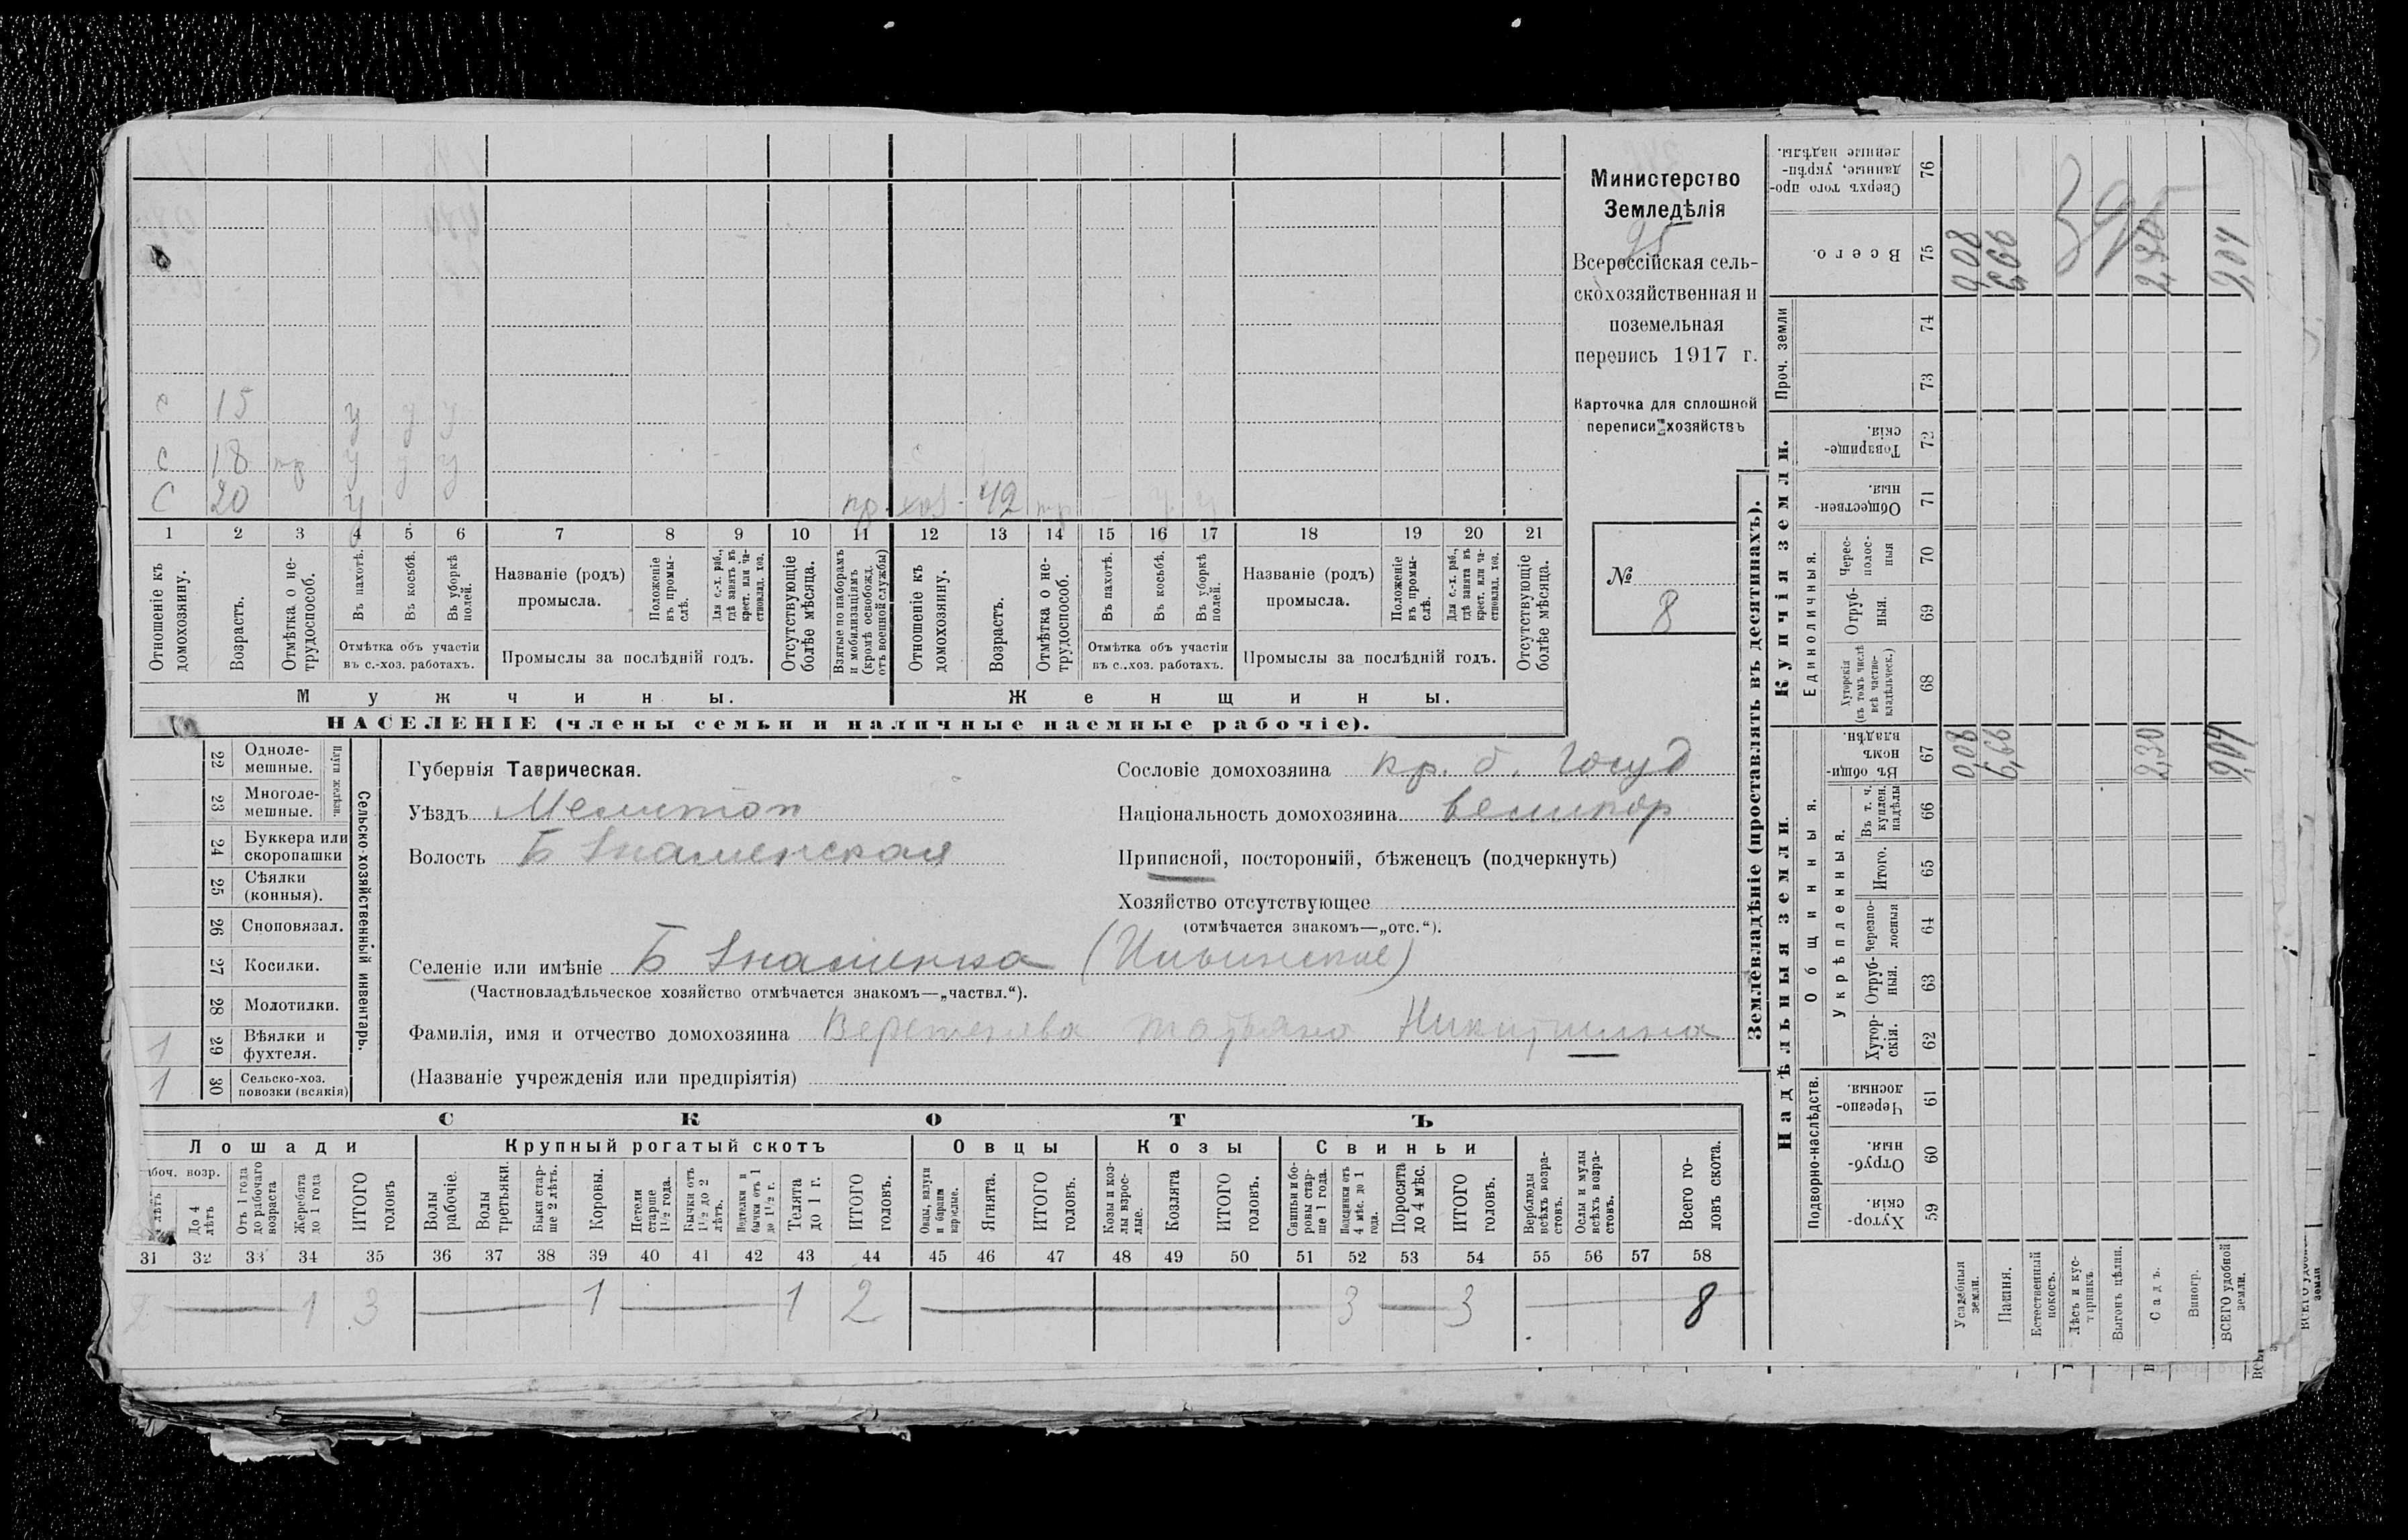 Министерство
Земледѣлія
95
Всероссійская сель-
скохозяйственная и
поземельная
перепись 1917 г.
Карточка для сплошной
переписи хозяйствъ
№
8
с 15 у у у
с 18 тр у у у
с 20 у пр хоз. 42 тр - у у
1 2 3 4 5 6 7 8 9 10 11 12 13 14 15 16 17 18 19 20 21
Отношеніе къ домохозяину.
Возрастъ.
Отмѣтка о не-трудоспособ.
Въ пахотѣ.
Въ косьбѣ.
Въ уборкѣ полей.
Отмѣтка объ участіи въ с.-хоз. работахъ.
Названіе (родъ) промысла.
Положеніе въ промы-слѣ.
Для с.-х. раб., гдѣ занятъ въ крест. или ча-стновлад. хоз.
Промыслы за послѣдній годъ.
Отсутствующіе болѣе мѣсяца.
Взятые по наборамъ и мобилизаціямъ (кромѣ освобожд. отъ военной службы)
Отношеніе къ домохозяину.
Возрастъ.
Отмѣтка о не-трудоспособ.
Въ пахотѣ.
Въ косьбѣ.
Въ уборкѣ полей.
Отмѣтка объ участіи въ с.-хоз. работахъ.
Названіе (родъ) промысла.
Положеніе въ промы-слѣ.
Для с.-х. раб., гдѣ занята въ крест. или ча-стновлад. хоз.
Промыслы за послѣдній годъ.
Отсутствующіе болѣе мѣсяца.
Мужчины. Женщины.
НАСЕЛЕНІЕ (члены семьи и наличные наемные рабочіе).
Сельско-хозяйственный инвентарь.
Плуги желѣзн.
22 Одноле-мешные.
23 Многоле-мешные.
24 Буккера или скоропашки
25 Сѣялки (конныя).
26 Сноповязал.
27 Косилки.
28 Молотилки.
1 29 Вѣялки и фухтеля.
1 30 Сельско-хоз. повозки (всякія)
Губернія Таврическая.
Уѣздъ Мелитоп
Волость Б Знаменская
Сословіе домохозяина кр. б. Госуд
Національность домохозяина великор
Приписной, посторонній, бѣженецъ (подчеркнуть)
Хозяйство отсутствующее
(отмѣчается знакомъ—„отс.“).
Селеніе или имѣніе Б Знаменка
(Частновладѣльческое хозяйство отмѣчается знакомъ—„частвл.“).
Фамилія, имя и отчество домохозяина Никитишна
(Названіе учрежденія или предпріятія)
СКОТЪ
Лошади Крупный рогатый скотъ Овцы Козы Свиньи
боч. возр.
лѣтъ
До 4 лѣтъ
Отъ 1 года до рабочаго возраста
Жеребята до 1 года
ИТОГО головъ
Волы рабочіе.
Волы третьяки.
Быки стар-ше 2 лѣтъ.
Коровы.
Нетели старше 1 1/2 года.
Бычки отъ 1 1/2 до 2 лѣтъ.
Подтелки и бычки отъ 1 до 1 1/2 г.
Телята до 1 г.
ИТОГО головъ.
Овцы, валухи и бараны взрослые.
Ягнята.
ИТОГО головъ.
Козы и коз-лы взрос-лые.
Козлята
ИТОГО головъ.
Свиньи и бо-ровы стар-ше 1 года.
Подсвинки отъ 4 мѣс. до 1 года.
Поросята до 4 мѣс.
ИТОГО головъ.
Верблюды всѣхъ возра-стовъ.
Ослы и мулы всѣхъ возра-стовъ.
Всего го-ловъ скота.
31 32 33 34 35 36 37 38 39 40 41 42 43 44 45 46 47 48 49 50 51 52 53 54 55 56 57 58
2 — 1 3 — 1 — 1 2 — 3 — 3 — 8
Землевладѣніе (проставлять въ десятинахъ).
Надѣльныя земли. Купчія земли.
Подворно-наслѣдств.
Общинныя.
Укрѣпленныя.
Единоличныя.
Проч. земли
Хутор-скія. 59
Отруб-ныя. 60
Черезпо-лосныя. 61
Хутор-скія. 62
Отруб-ныя. 63
Черезпо-лосныя 64
Итого. 65
Въ т. ч. куплен. надѣлы 66
Въ общи-номъ владѣн. 67
Хуторскія (въ томъ числѣ всѣ частно-владѣльческ.) 68
Отруб-ныя. 69
Черес-полос-ныя 70
Обществен-ныя. 71
Товарище-скія. 72
73
74
Всего. 75
Сверхъ того про-данные, укрѣп-ленные надѣлы. 76
395
Усадебныя земли. 0,08 0,08
Пашня. 6,66 6,66
Естественный покосъ.
Лѣсъ и кус-тарникъ.
Выгонъ цѣлин.
Садъ. 2,30 2,30
Виногр.
ВСЕГО удобной земли. 9,04 9,04